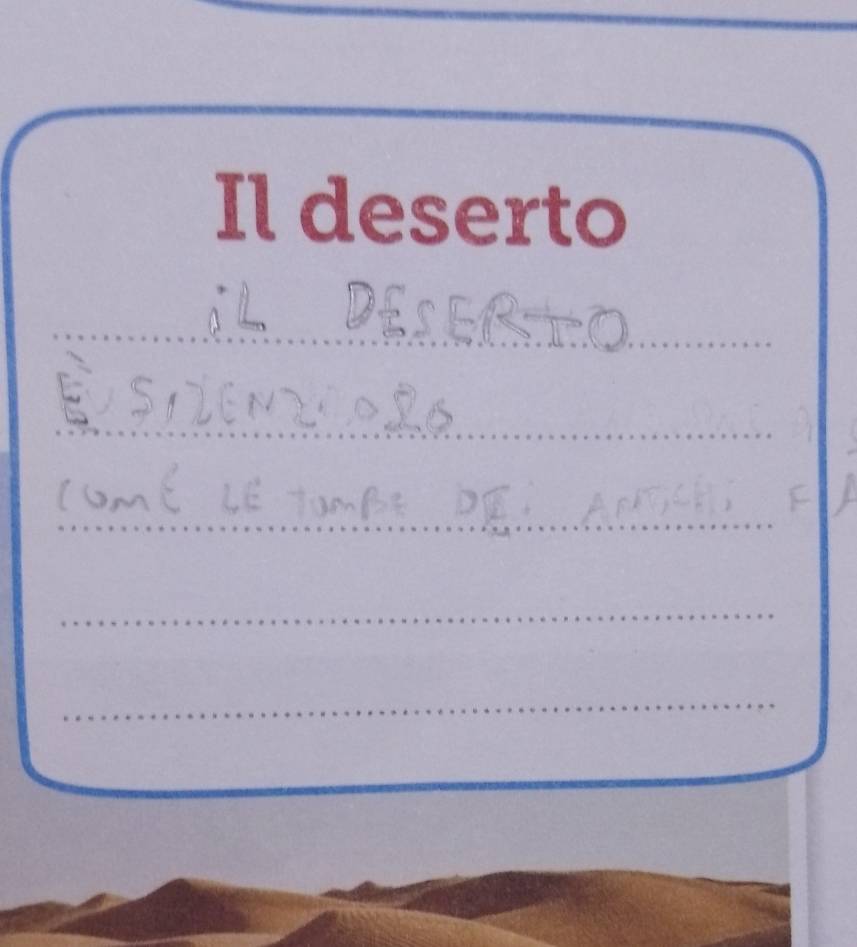 Il deserto
iL DESERTO
È SIZENZIOSO
COME LE TOMBE DEi ANTiCHi FA